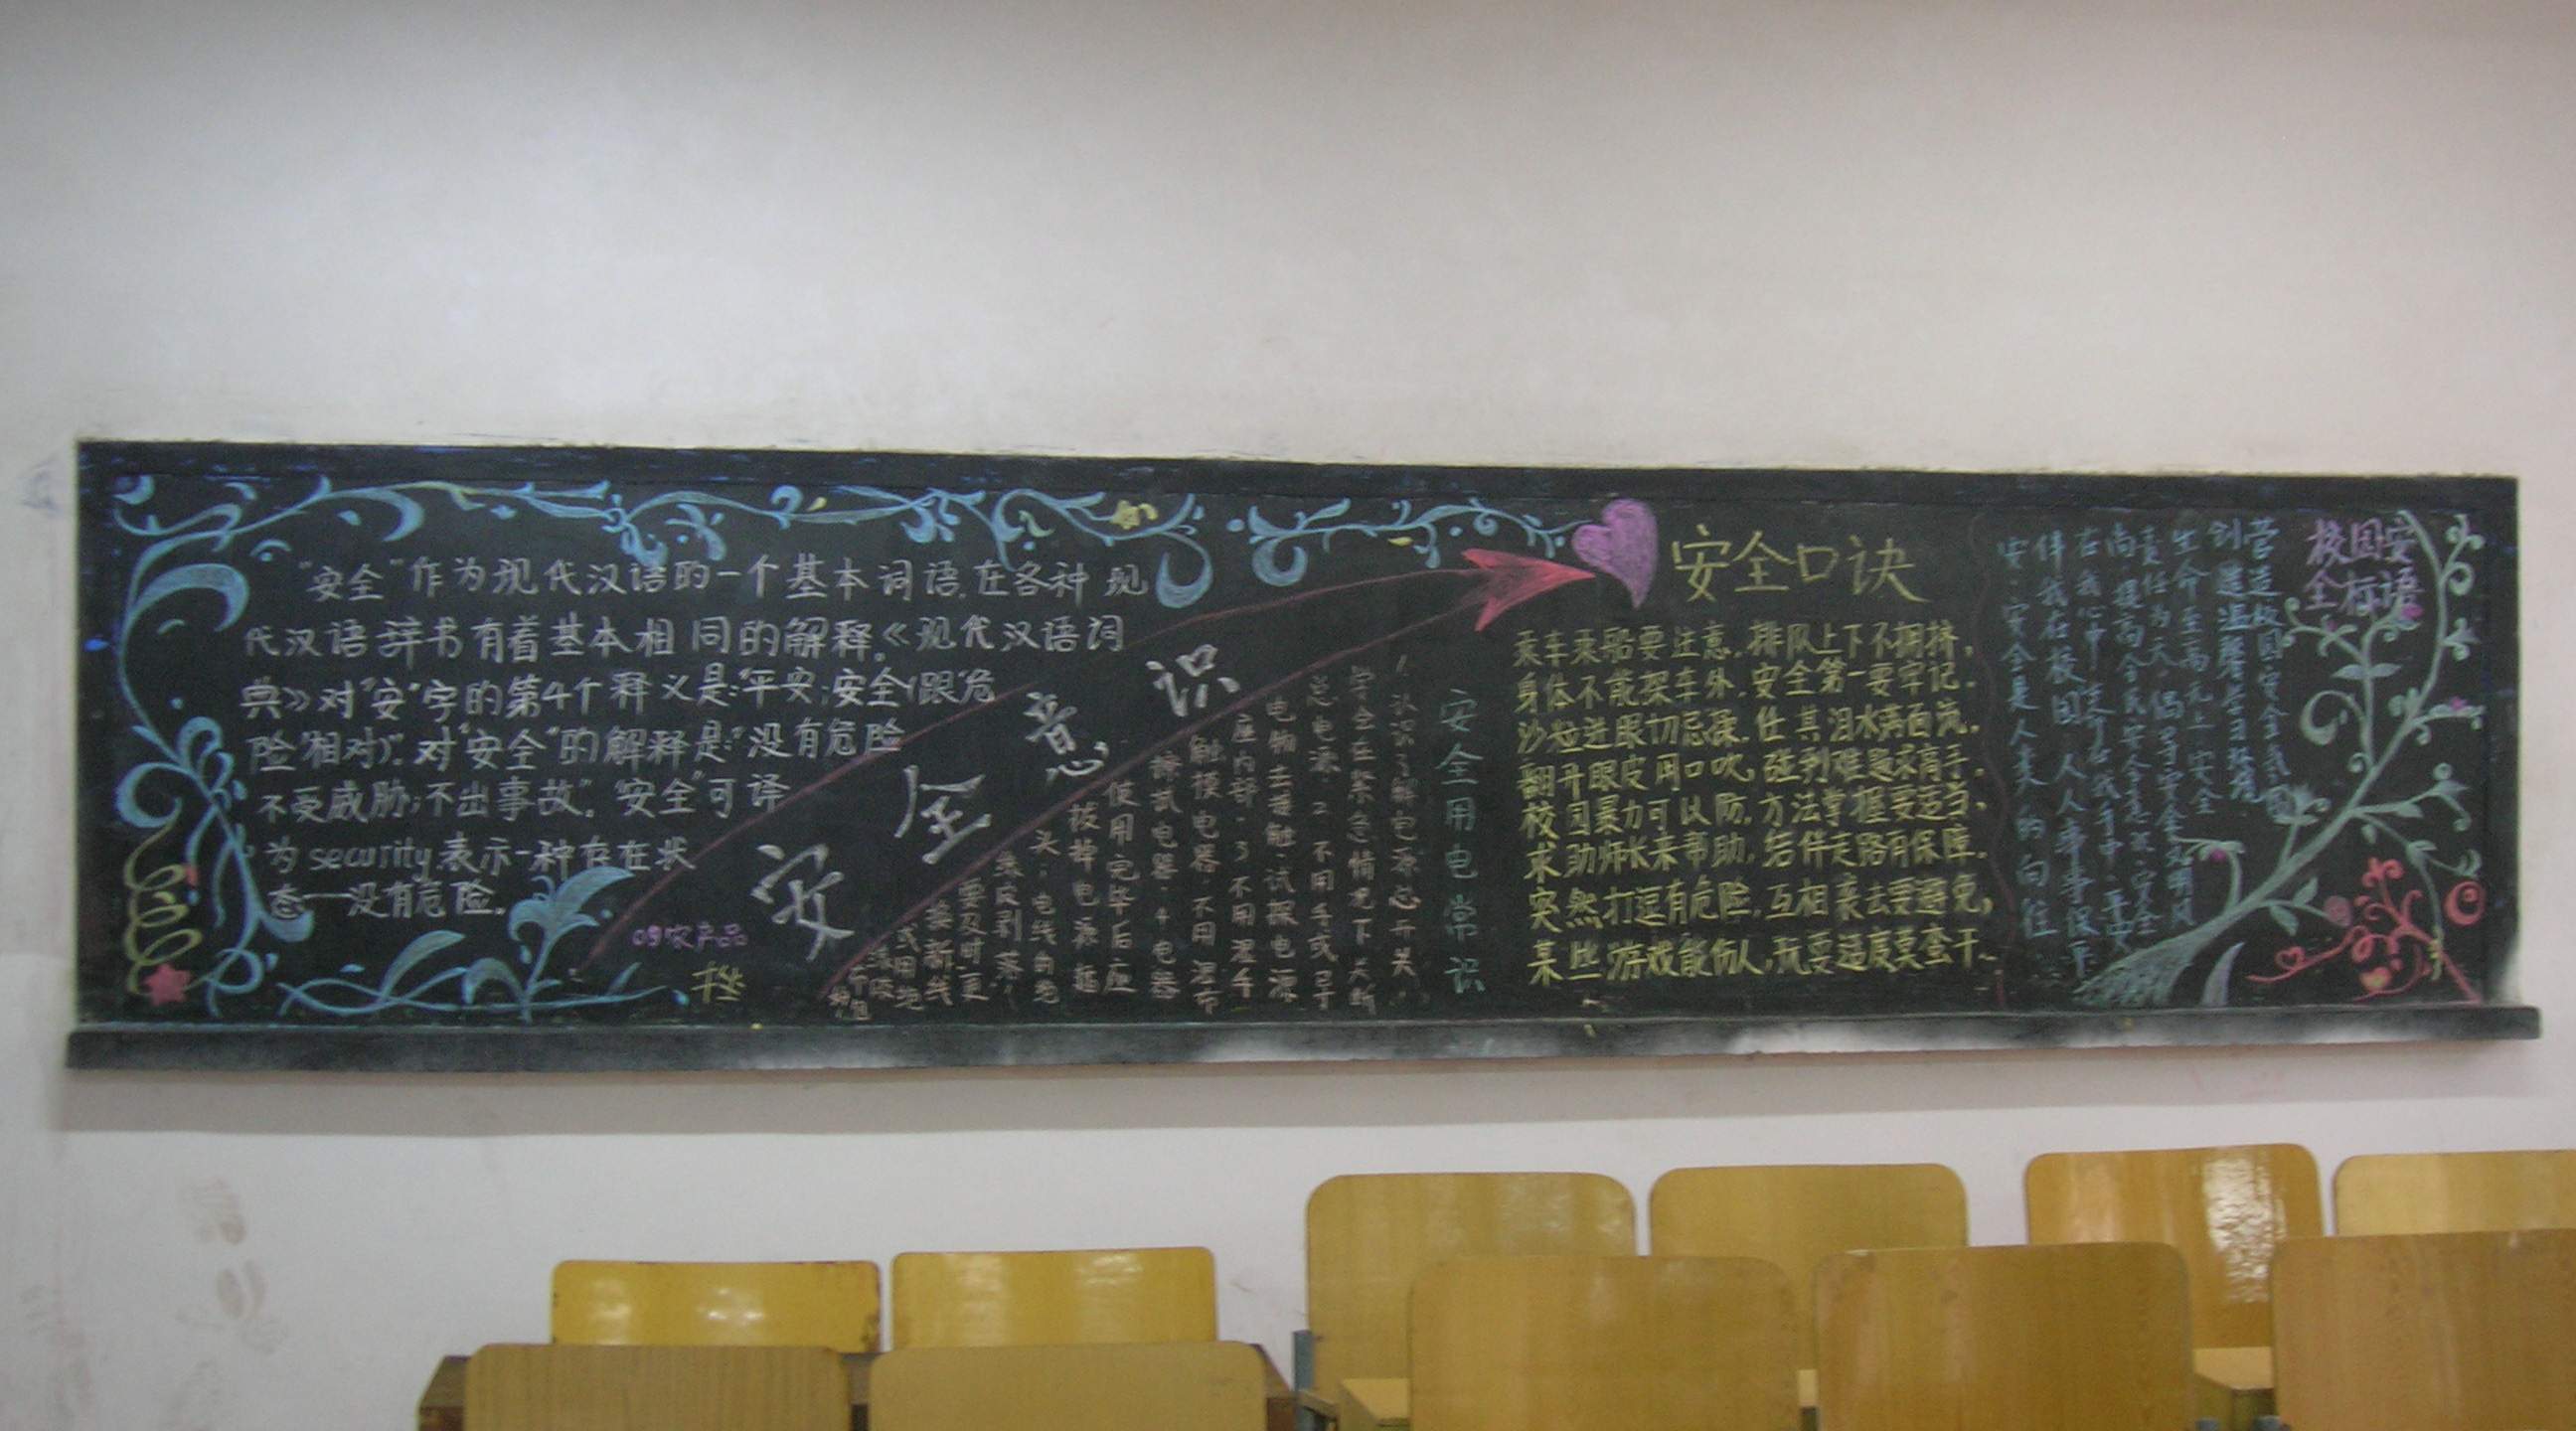 "安全"作为现代汉语的一个基本词语,在各种现
代汉语辞书有着基本相同的解释。《现代汉语词
典》对"安"字的第4个释义是:"平安;安全(跟"危
险"相对)".对"安全"的解释是:"没有危险
不受威胁;不出事故"."安全"可译
为security,表示一种存在状
态——没有危险。
09农产品
安全意识
安全用电常识
1.认识了解电源总开关,
学会在紧急情况下关断
总电源。2.不用手或导
电物去接触、试探电源
座内部。3.不用湿手
触摸电器,不用湿布
擦拭电器。4.电器
使用完毕后应
拔掉电源插
头;电线的绝
缘皮剥落,
要及时更
换新线
或用绝
安全口诀
乘车乘船要注意,排队上下不拥挤,
身体不能探车外,安全第一要牢记.
沙粒进眼切忌揉,任其泪水满面流.
翻开眼皮用口吹,碰到难题求高手.
校园暴力可以防,方法掌握要适当.
求助师长来帮助,结伴走路有保障.
突然打逗有危险,互相亲去要避免,
某些游戏能伤人,玩耍适度莫蛮干.
校园安
全标语
营造校园安全氛围
创造温馨学习环境
生命至高无上安全
责任为天。倡导安全文明风
尚,提高全民安全意识.安全
在我心中,生命在我手中.平安
伴我在校园,人人事事保平
安.安全是人类的向往